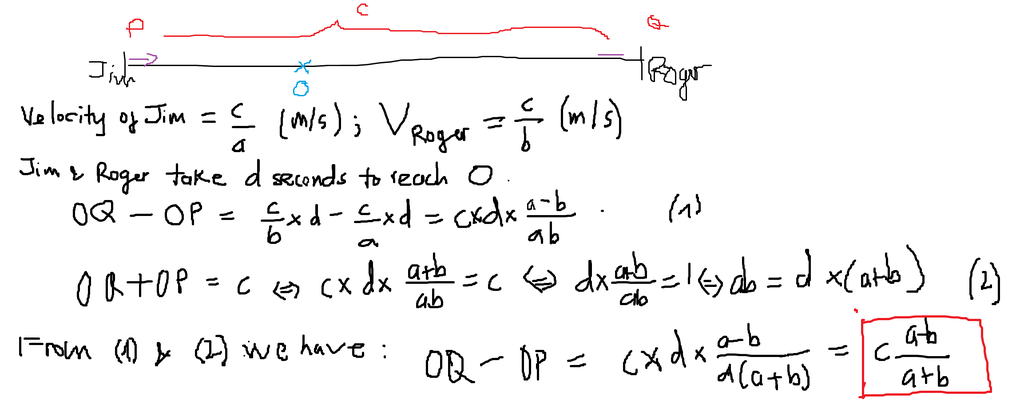 P C Q
Jim O Roger
Velocity of Jim = c/a (m/s); V Roger = c/b (m/s)
Jim & Roger take d seconds to reach O.
OQ - OP = c/b x d - c/a x d = c x d x (a-b)/(ab). (1)
OQ + OP = c <=> c x d x (a+b)/(ab) = c <=> d x (a+b)/(ab) = 1 <=> ab = d x (a+b) (2)
From (1) & (2) we have: OQ - OP = c x d x (a-b)/(d(a+b)) = c (a-b)/(a+b)